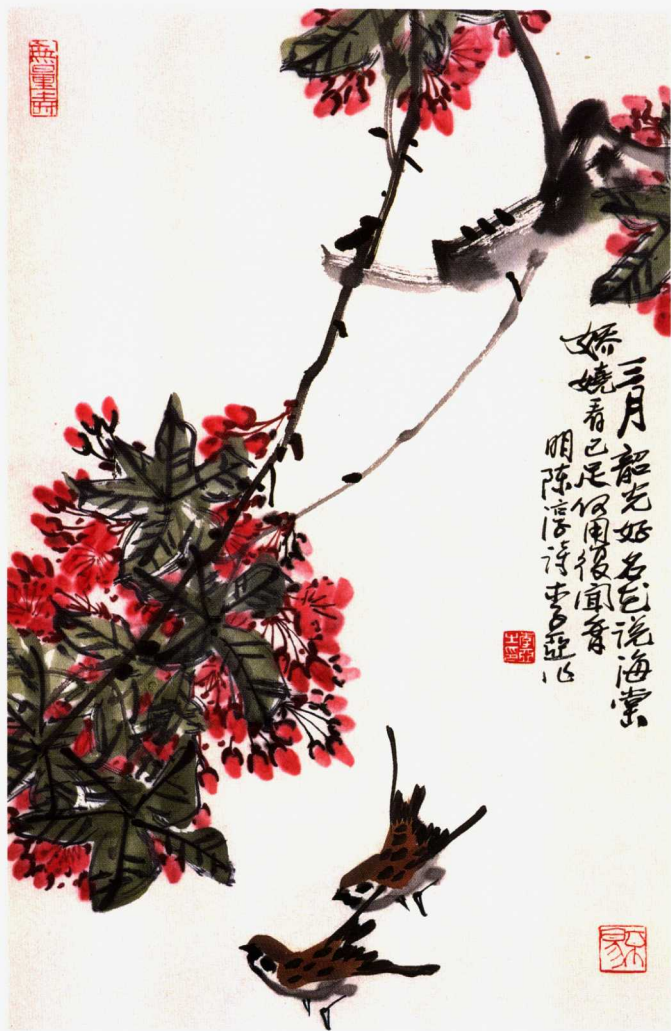 三月韶光好名花说海棠
娇娆看已足何用复闻香
明陈淳诗李亚作
無量寿